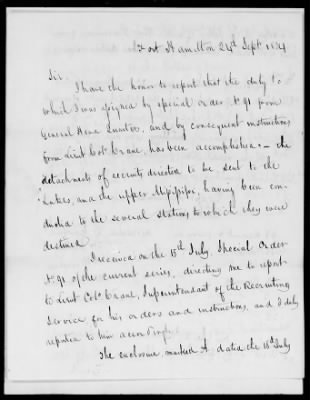 Fort Hamilton 24th Sept.
Sir.
I have the honor to report that the duty to
which I was assigned by special order No 91 from
General Head Quarters, and by consequent instructions
from Lieut Col. Crane, has been accomplished – the
detachments of recruits directed to be sent to the
Lakes, and the upper Mississippi, having been con-
ducted to the several stations to which they were
destined.
I received on the 15th July, Special Order
No 91 of the current series, directing me to report
to Lieut Colo. Crane, Superintendant of the Recruiting
Service for his orders and instructions, and I duly
reported to him accordingly.
The enclosure marked A. dated the 18th July